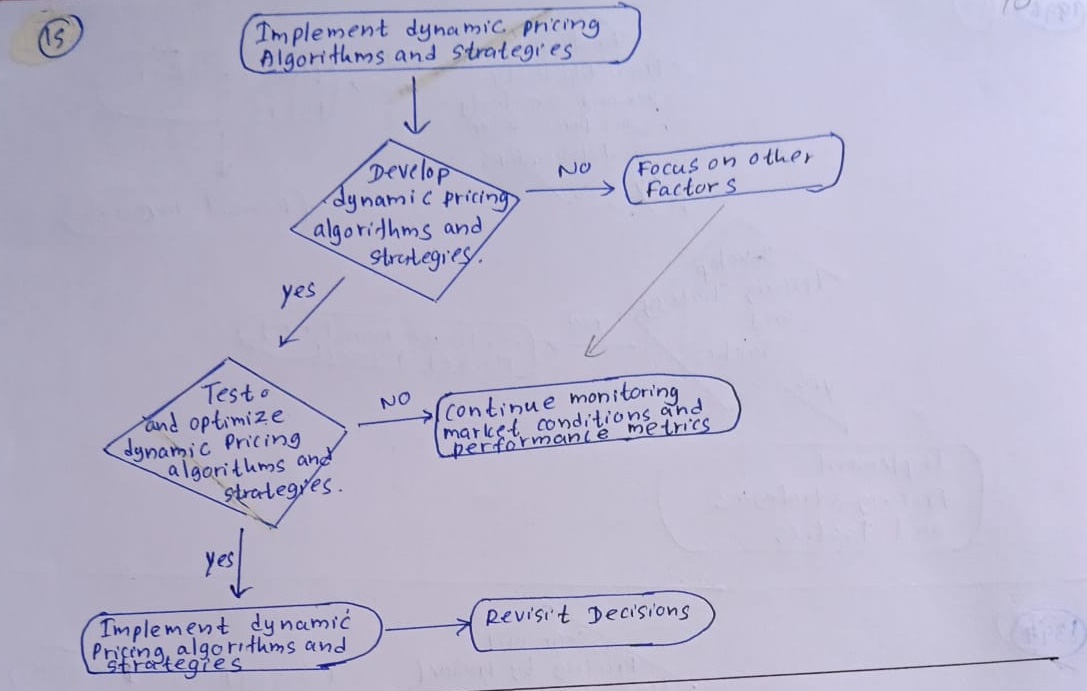 15
Implement dynamic pricing
Algorithms and strategies
Develop
dynamic pricing
algorithms and
strategies.
NO
Focus on other
Factors
yes
Test
and optimize
dynamic Pricing
algorithms and
strategies.
NO
continue monitoring
market conditions and
performance metrics
yes
Implement dynamic
Pricing algorithms and
strategies
Revisit Decisions